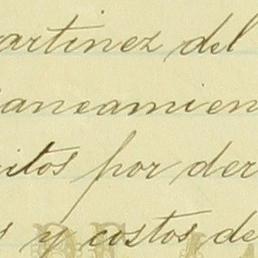 artinez del
aneamien
itos por der
s y costos de